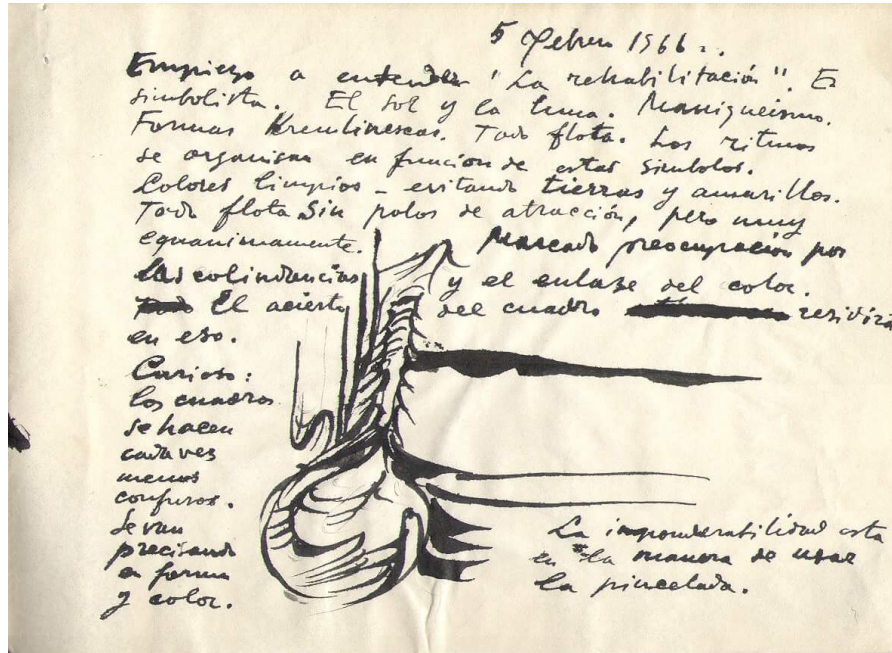 5 Febrero 1966..
Empiezo a entender "La rehabilitación". Es
simbolista. El sol y la luna. Maniqueismo.
Formas Kremlinescas. Todo flota. Los ritmos
se organisan en función de estos simbolos.
Colores limpios - evitando tierras y amarillos.
Todo flota sin polos de atracción, pero muy
equanimamente. Marcada preocupación por
las colindancias y el enlase del color.
El acierto del cuadro residira
en eso.
Curioso:
los cuadros
se hacen
cada ves
menos
confusos.
Se van
precisando
en forma
y color.
La imponderabilidad esta
en la manera de usar
la pincelada.